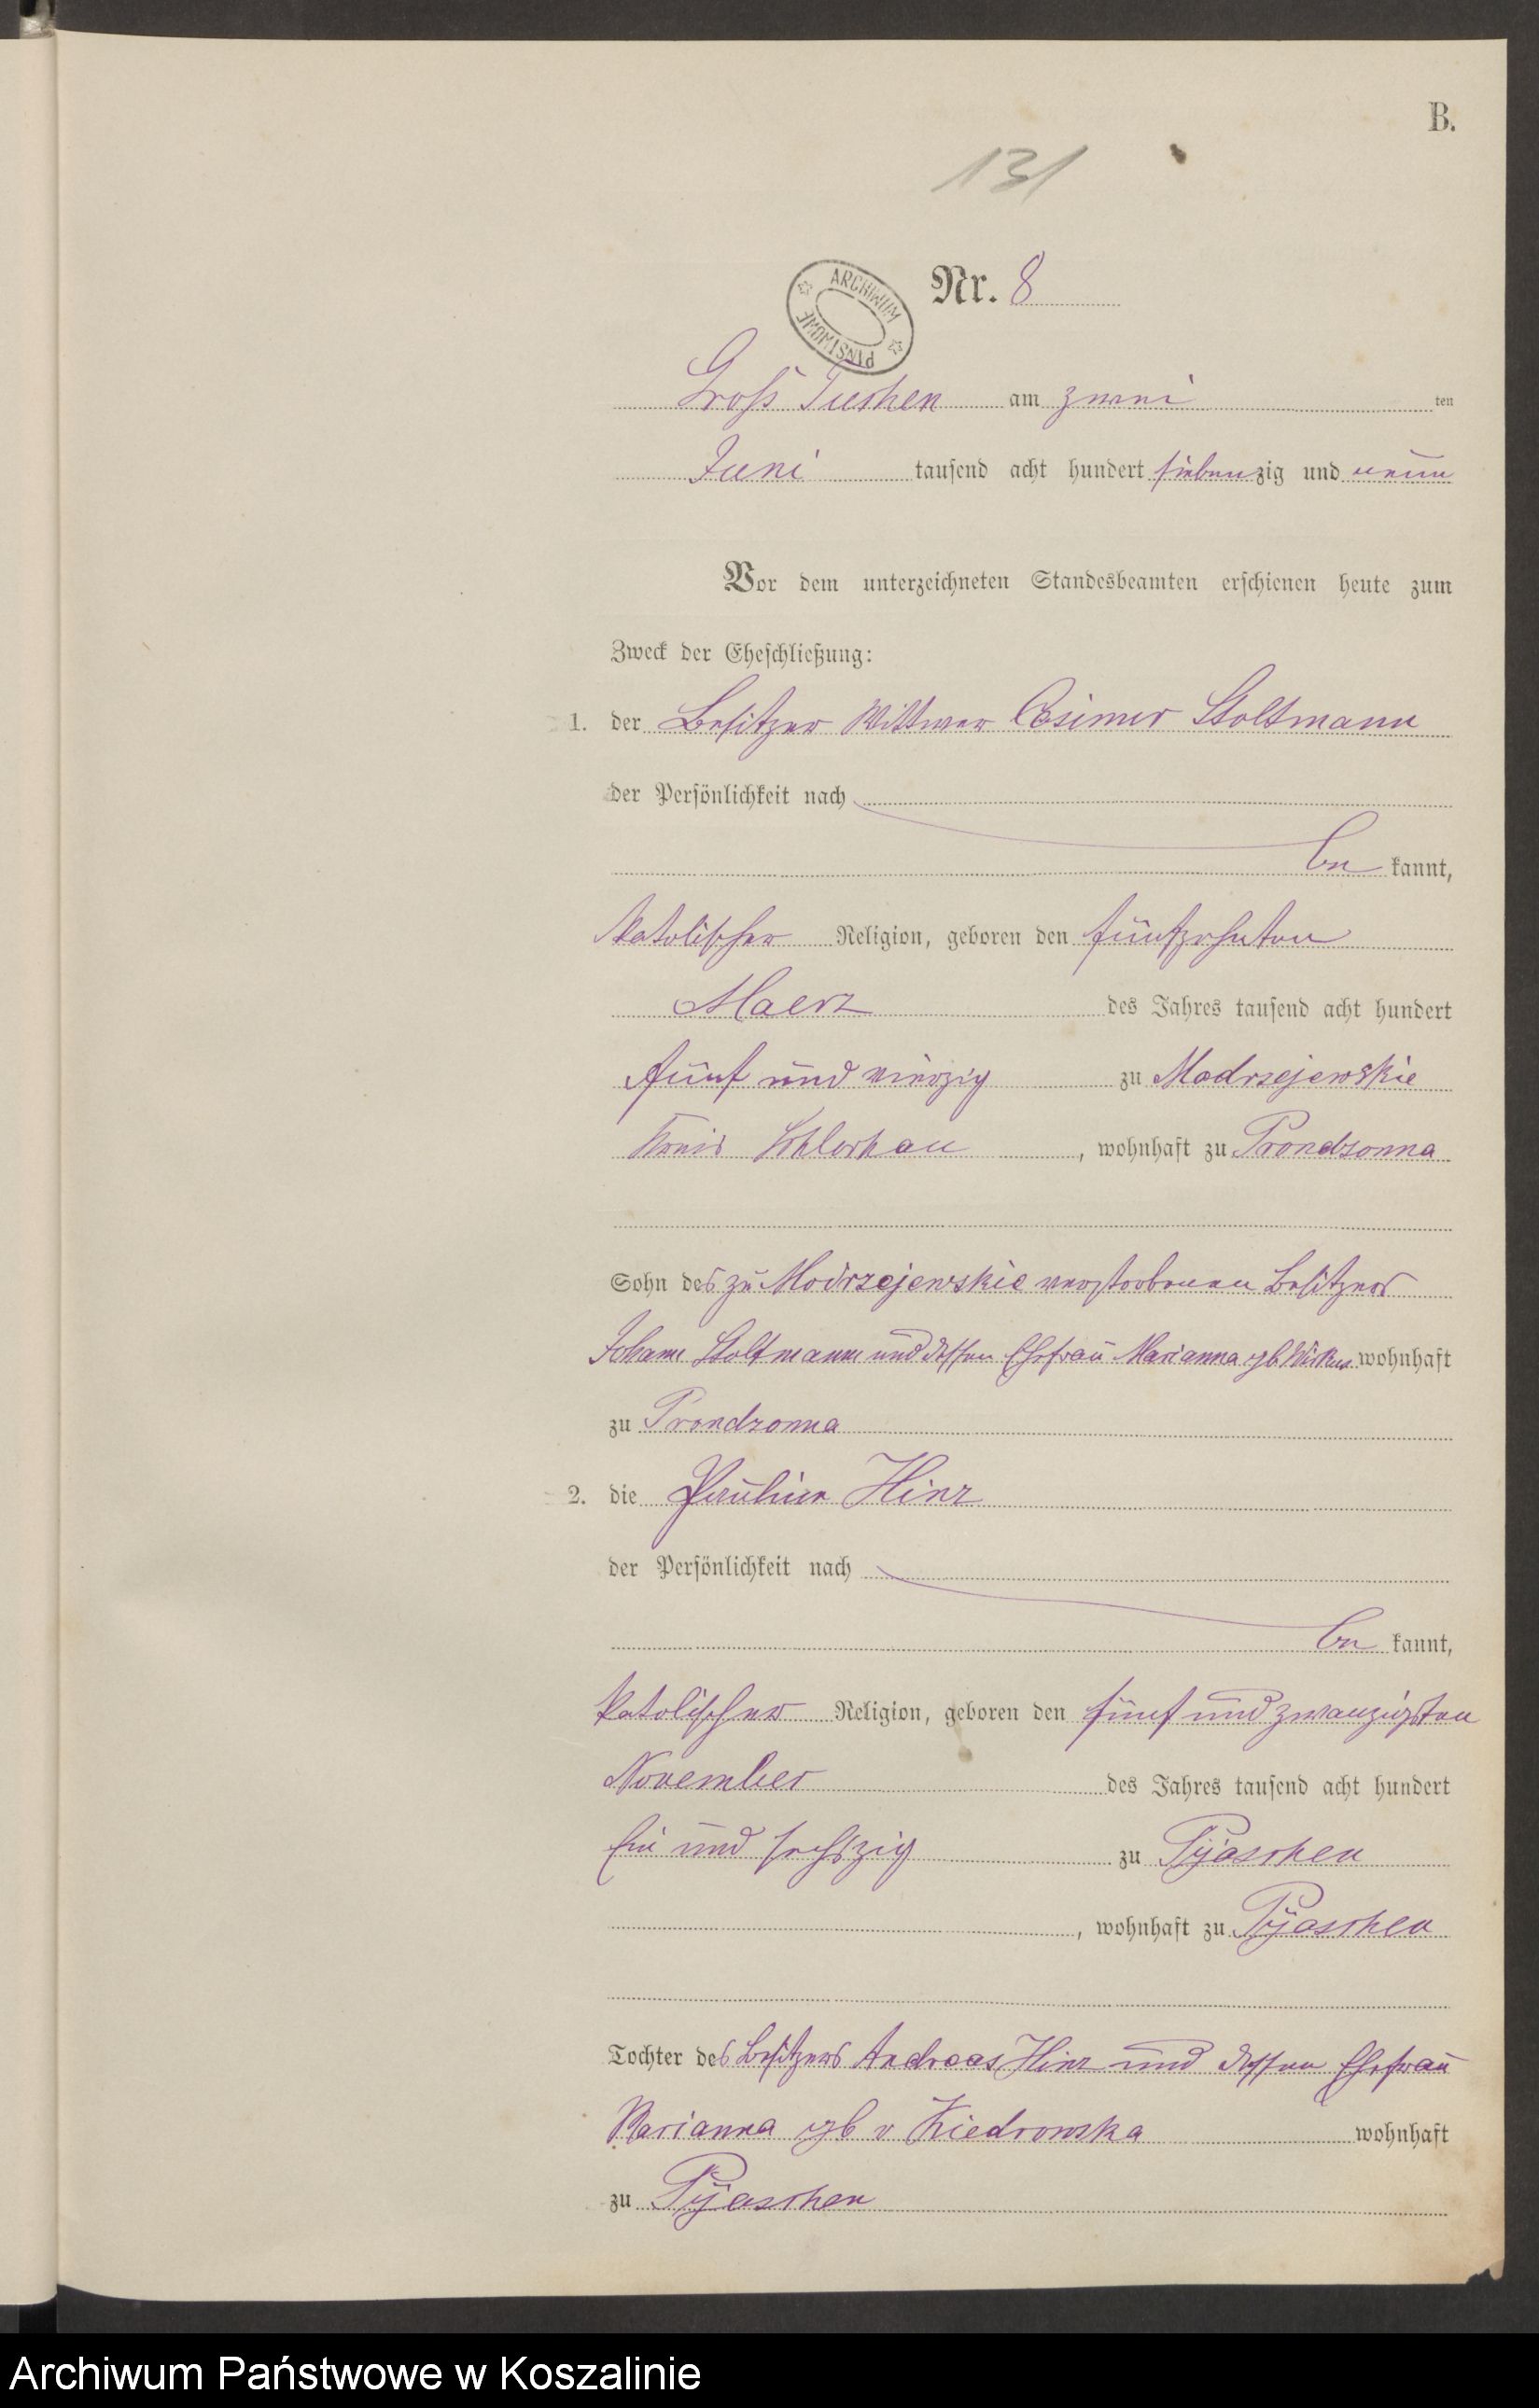 B.
131
Nr. 8
ARCHIWUM PAŃSTWOWE
Groß Tuchen am zwei ten
Juni tausend acht hundert siebenzig und neun
Vor dem unterzeichneten Standesbeamten erschienen heute zum
Zweck der Eheschließung:
1. der Besitzer Wittwer Casimir Stoltmann
der Persönlichkeit nach
be kannt,
katolischer Religion, geboren den fünfzehnten
Maerz des Jahres tausend acht hundert
fünf und vierzig zu Modrzejewskie
Kreis Schlochau, wohnhaft zu Prondzonna
Sohn des zu Modrzejewskie verstorbenen Besitzers
Johann Stoltmann und dessen Ehefrau Marianna gb Wirkus wohnhaft
zu Prondzonna
2. die Pauline Hinz
der Persönlichkeit nach
be kannt,
katolischer Religion, geboren den fünf und zwanzigsten
November des Jahres tausend acht hundert
Ein und sechszig zu Pyaschen
, wohnhaft zu Pyaschen
Tochter des Besitzers Andreas Hinz und dessen Ehefrau
Marianna gb v Kiedrowska wohnhaft
zu Pyaschen
Archiwum Państwowe w Koszalinie